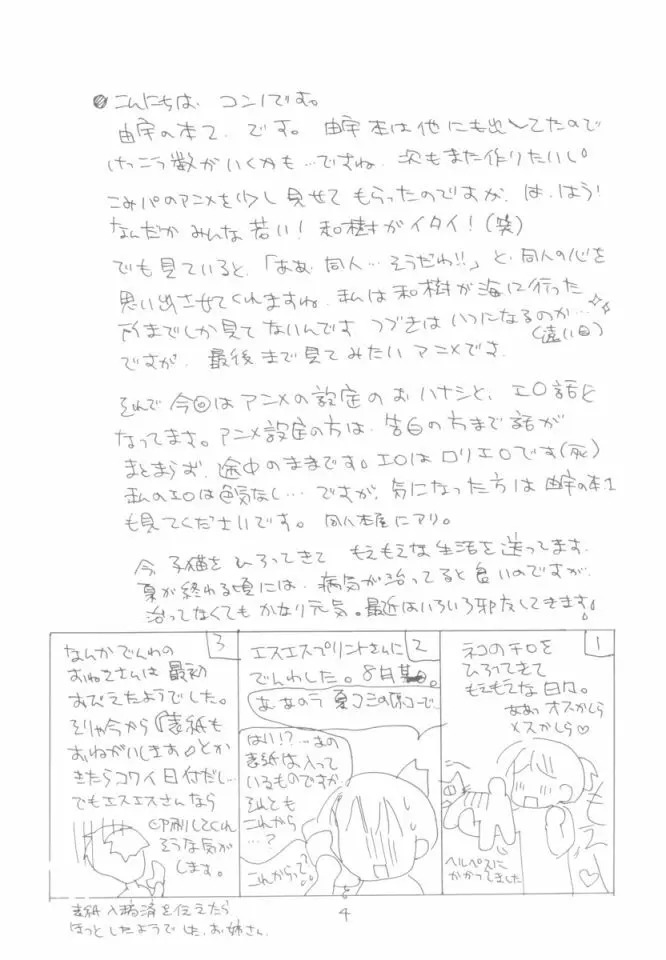 こんにちは、コンノです。
由宇の本2、です。由宇本は他にも出してたので
けっこう数がいくかも…ですね、次もまた作りたいし。
こみパのアニメを少し見せてもらったのですが、は、はう!
なんだかみんな若い!和樹がイタイ!(笑)
でも見ていると、「ああ、同人…そうだわ!!」と、同人の心を
思い出させてくれますね、私は和樹が海に行った
所までしか見てないんです つづきはいつになるのか…
(遠い目)
ですが、最後まで見てみたいアニメです。
それで今回はアニメの設定のおハナシと、エロ話と
なってます。アニメ設定の方は、告白の方まで話が
まとまらず、途中のままです。エロはロリエロです(死)
私のエロは色気なし…ですが、気になった方は由宇の本1
も見てくださいです。同人本屋にアリ。
今、子猫をひろってきてもえもえな生活を送ってます、
夏が終わる頃には、病気が治ってると良いのですが、
治ってなくてもかなり元気。最近はいろいろ邪魔してきます!
1
ネコのチロを
ひろってきて
もえもえな日々。
ああっオスかしら
メスかしら♡
もえ
ヘルペスに
かかってました
2
エスエスプリントさんに
でんわした。8月某日。
あ、あのう夏コミの原コーで、
はい!?…あの
表紙は入って
いるものですか
それとも
これから
…?
これからって?
3
なんかでんわの
おねえさんは最初
おびえたようでした。
そりゃ今から『表紙も
おねがいします♪』とか
きたらコワイ日付だし…
でもエスエスさんなら
印刷してくれ
そうな気が
します。
表紙入稿済を伝えたら
ほっとしたようでした、お姉さん。
4